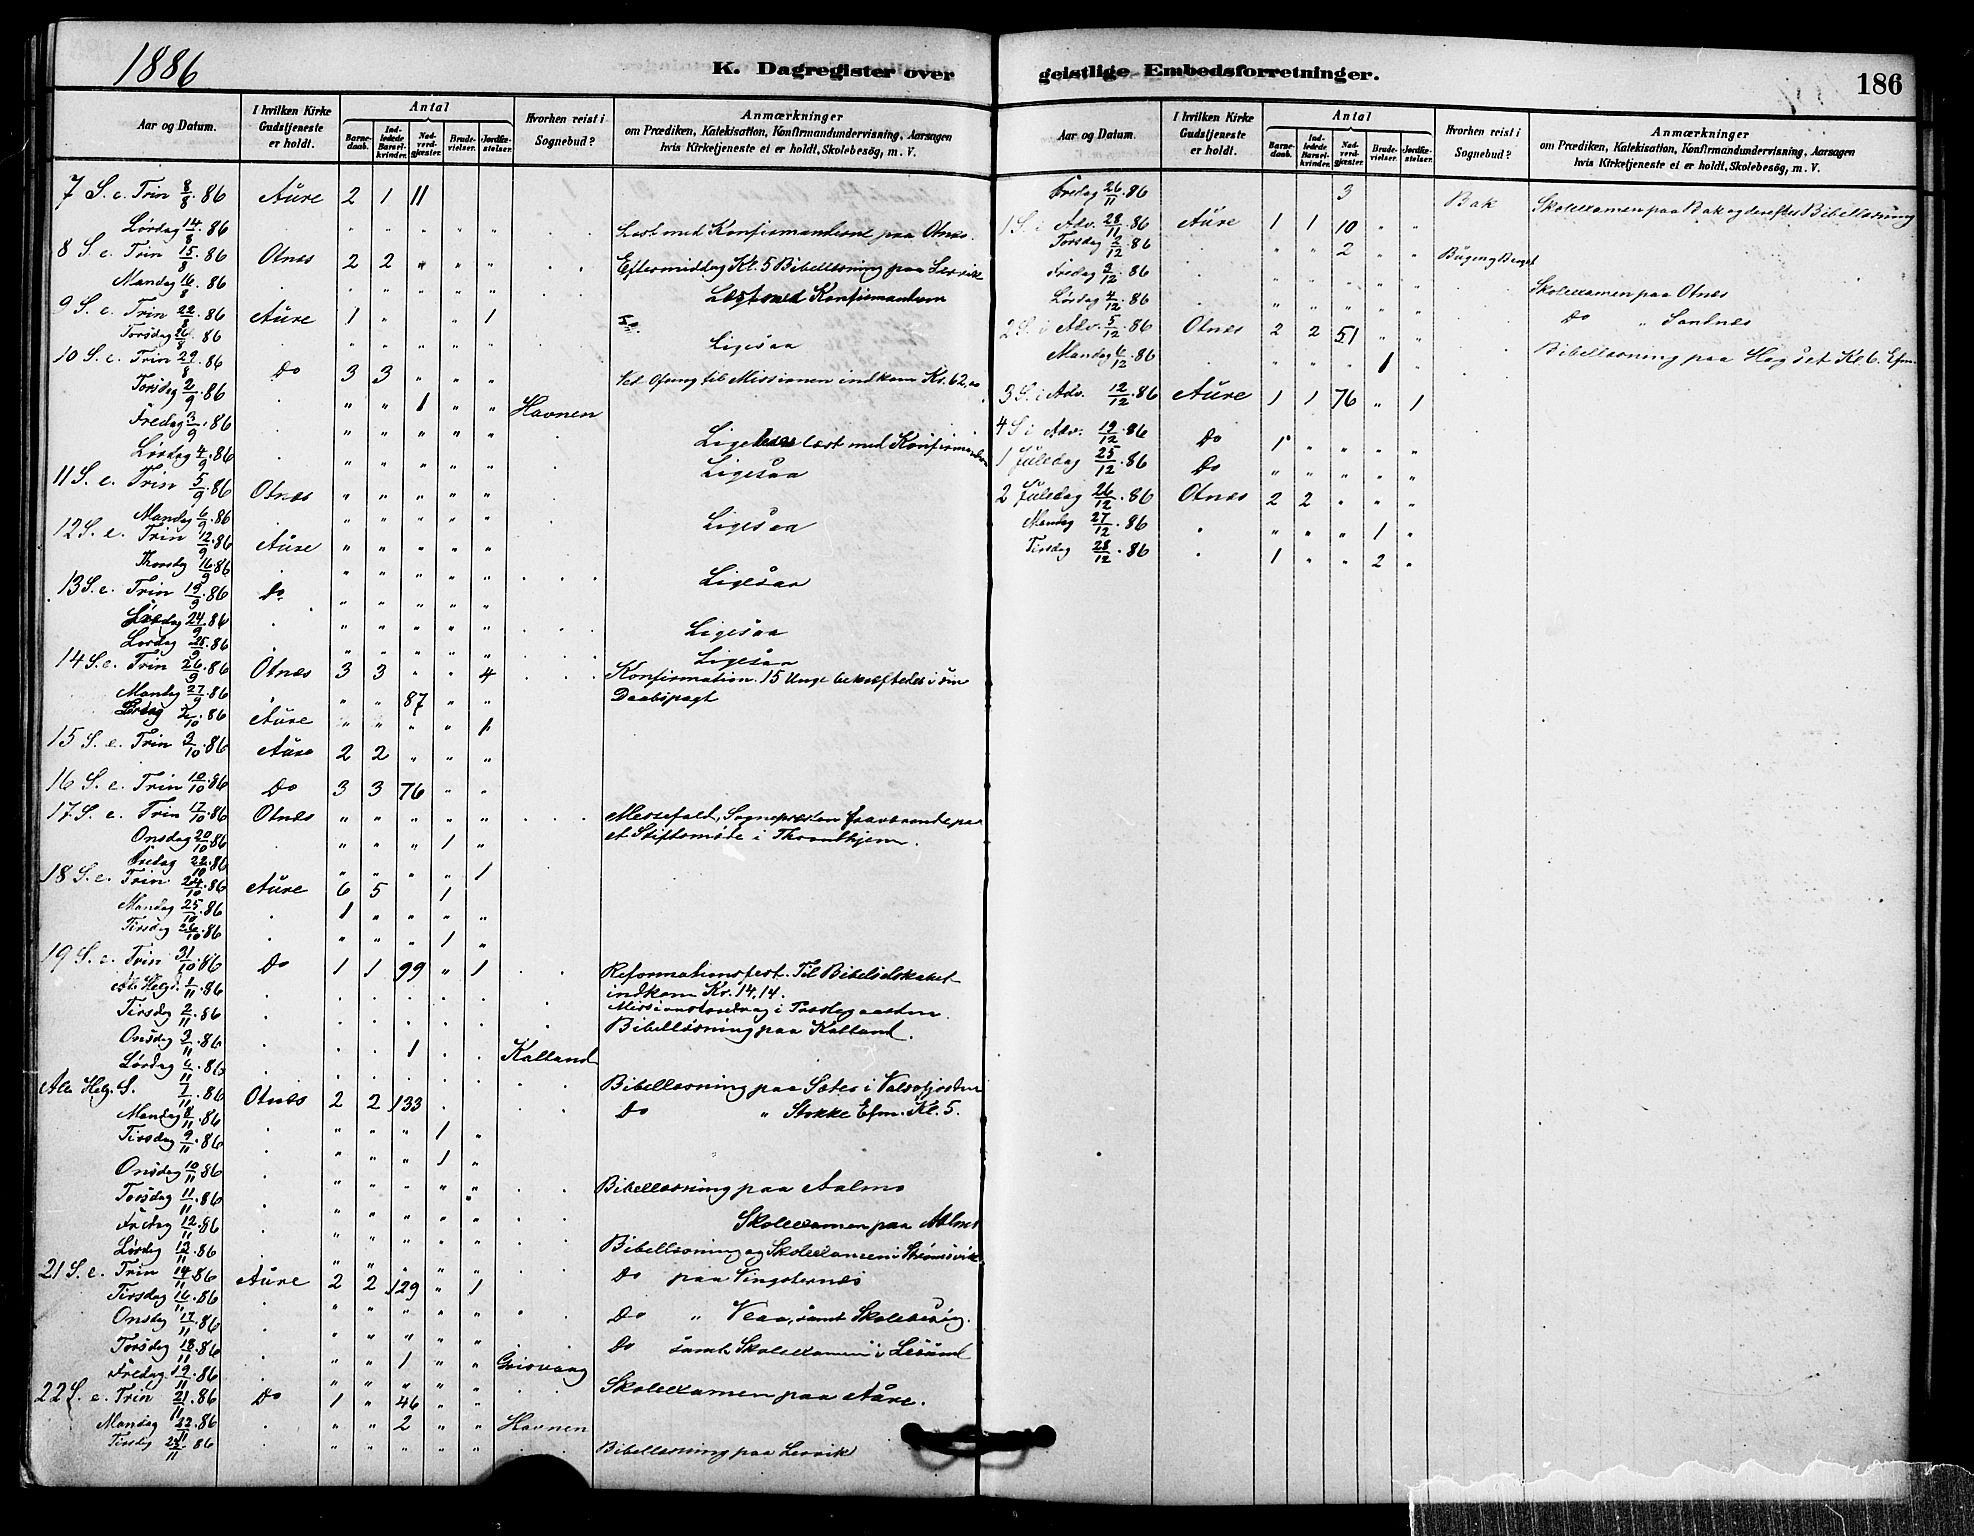 1886
K. Dagregister over
Aar og Datum.
I hvilken Kirke Gudstjeneste er holdt.
Antal
Barnedaab.
Indledede Barselkvinder.
Nadverdgjæster.
Brudevielser.
Jordfæstelser.
Hvorhen reist i Sognebud?
Anmærkninger
om Prædiken, Katekisation, Konfirmandundervisning, Aarsagen
hvis Kirketjeneste ei er holdt, Skolebesög, m. V.
7 S. e. Trin 8/8 86 Aure 2 1 11
Lørdag 14/8 86 " " " " " Læst med Konfirmanderne paa Otnæs.
8 S. e. Trin 15/8 86 Otnæs 2 2 " " " Eftermiddag Kl. 5 Bibellæsning paa Lesvik
Mandag 16/8 86 " " " " " Læst med Konfirmanderne
9 S. e. Trin 22/8 86 Aure 1 " " 1 Do
Torsdag 26/8 86 " " " " " Ligesaa
10 S. e. Trin 29/8 86 Do 3 3 " " " Ved Ofring til Missionen indkom Kr. 62,00
Torsdag 2/9 86 " " 1 " " Havnen
Fredag 3/9 86 " " " " " læst med Konfirmanderne
Lørdag 4/9 86 " " " " " Ligesaa
11 S. e. Trin 5/9 86 Otnæs " " " " "
Mandag 6/9 86 " " " " " Ligesaa
12 S. e. Trin 12/9 86 Aure " " " " "
Thorsdag 16/9 86 " " " " " Ligesaa
13 S. e. Trin 19/9 86 Do " " " " "
24/9 86 " " " " " Ligesaa
Lørdag 25/9 86 " " " " " Ligesaa
14 S. e. Trin 26/9 86 Otnæs 3 3 " " 4 Konfirmation. 15 Unge bekræftedes i sin
Mandag 27/9 86 " " 87 " " Daabspagt
Lørdag 2/10 86 Aure " " " " 1
15 S. e. Trin 3/10 86 Aure 2 2 " " "
16 S. e. Trin 10/10 86 Do 3 3 76 " "
17 S. e. Trin 17/10 86 Otnæs " " " " " Messefald, Sognepræsten fraværende paa
Onsdag 20/10 86 " " " 1 " et Stiftsmøde i Throndhjem.
Fredag 22/10 86 " " " " 1
18 S. e. Trin 24/10 86 Aure 6 5 1
Mandag 25/10 86 1 " " " "
Tirsdag 26/10 86 " " " 1 "
19 S. e. Trin 31/10 86 Do 1 1 99 " 1 Reformationsfest. Til Bibelselskabet
Al. Helg. 1/11 86 indkom Kr. 14,14.
Tirsdag 2/11 86 Missionsforedrag i Præstegaarden.
Onsdag 3/11 86 1 Kalland Bibellæsning paa Kalland.
Lørdag 6/11 86 Bibellæsning paa Sætes i Valsøfjorden
Alle Helg. S. 7/11 86 Otnæs 2 2 133 Do " Stokke Efm. Kl. 5.
Mandag 8/11 86 " " " 1 "
Tirsdag 9/11 86 " " " 1 "
Onsdag 10/11 86 " " " " " Bibellæsning paa Aalmo
Torsdag 11/11 86 " " " " " Skolexamen paa Aalmo
Fredag 12/11 86 " " " " " Bibellæsning og Skolexamen i Strømsvik
Lørdag 13/11 86 " " " " " Do paa Vingsternæs
21 S. e. Trin 14/11 86 Aure 2 2 129 " 1
Tirsdag 16/11 86 " " " " " Do " Veaa, samt Skolebesøg.
Onsdag 17/11 86 " " " " " Do samt Skolexamen i Lesund
Torsdag 18/11 86 " " 1 " " Grisvaag
Fredag 19/11 86 " " " " " Skolexamen paa Aure.
22 S. e. Trin 21/11 86 Do 1 " 46 " "
Mandag 22/11 86 " " 2 " " Havnen
Tirsdag 23/11 86 " " " " " Bibellæsning paa Lesvik
geistlige Embedsforretninger.
186
Aar og Datum.
I hvilken Kirke Gudstjeneste er holdt.
Antal
Barnedaab.
Indledede Barselkvinder.
Nadverdgjæster.
Brudevielser.
Jordfæstelser.
Hvorhen reist i Sognebud?
Anmærkninger
om Prædiken, Katekisation, Konfirmandundervisning, Aarsagen
hvis Kirketjeneste ei er holdt, Skolebesög, m. V.
Fredag 26/11 86 3 Bak Skolexamen paa Bak og derefter Bibellæsning
1 S. i Adv. 28/11 86 Aure 1 1 10 " "
Torsdag 2/12 86 " " 2 " "
Fredag 3/12 86 " " " " " Skolexamen paa Otnæs
Lørdag 4/12 86 " " " " " Do " Sandnes
2 S. i Adv. 5/12 86 Otnæs 2 2 51 " " Bibellæsning paa Hogset Kl. 6. Efm.
Mandag 6/12 86 " " " 1 "
3 S. i Adv. 12/12 86 Aure 1 1 76 " 1
4 S. i Adv. 19/12 86 Do 1 " " " "
1 Juledag 25/12 86 Do " " " " "
2 Juledag 26/12 86 Otnæs 2 2 " " "
Mandag 27/12 86 " " " 1 "
Tirsdag 28/12 86 1 " " 2 "